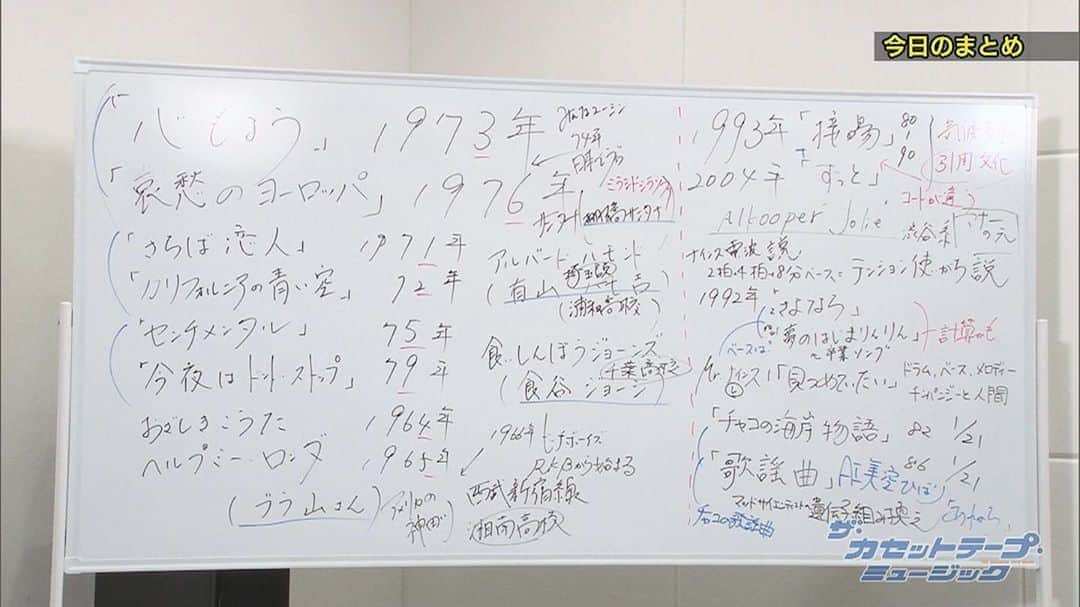 今日のまとめ
「心もよう」 1973年
74年
「哀愁のヨーロッパ」 1976年
「さらば恋人」 1971年
アルバート・ハモンド
「カリフォルニアの青い空」 72年
(有山
埼玉県
(浦和高校)
「センチメンタル」 75年
食いしんぼうジョーンズ
千葉高校
「今夜はドント・ストップ」 79年
(食谷 ジョージ)
おどしきこうた 1964年
1966年
ビーチボーイズ
R&Bから始まる
ヘルプミー・ロンダ 1965年
西武新宿線
(ブラ山さん)
アメリカの
湘南高校
1993年「接吻」
80
90
引用文化
2004年 「ずっと」
コードが違う
Alkooper Jolie
渋谷系
マナー
の元
ナインス電波説
2拍・4拍・8分ベース=テンション使いがち説
1992年
「さよなら」
「夢のはじまりんりん」
〜卒業ソング
ベースは
計算かも
ナインス!「見つめていたい」
ドラム、ベース、メロディー
チンパンジーと人間
「チャコの海岸物語」 82 1/21
「歌謡曲」 AI美空ひばり 86 1/21
マッドサイエンティストの遺伝子組み換え
チャコの歌謡曲
ザ・カセットテープ・ミュージック